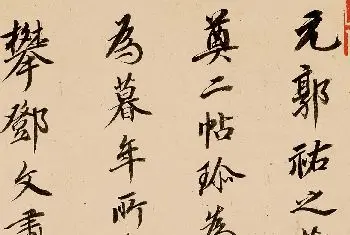 元郭祐之
奠二帖珎
為暮年所
攀鄧文